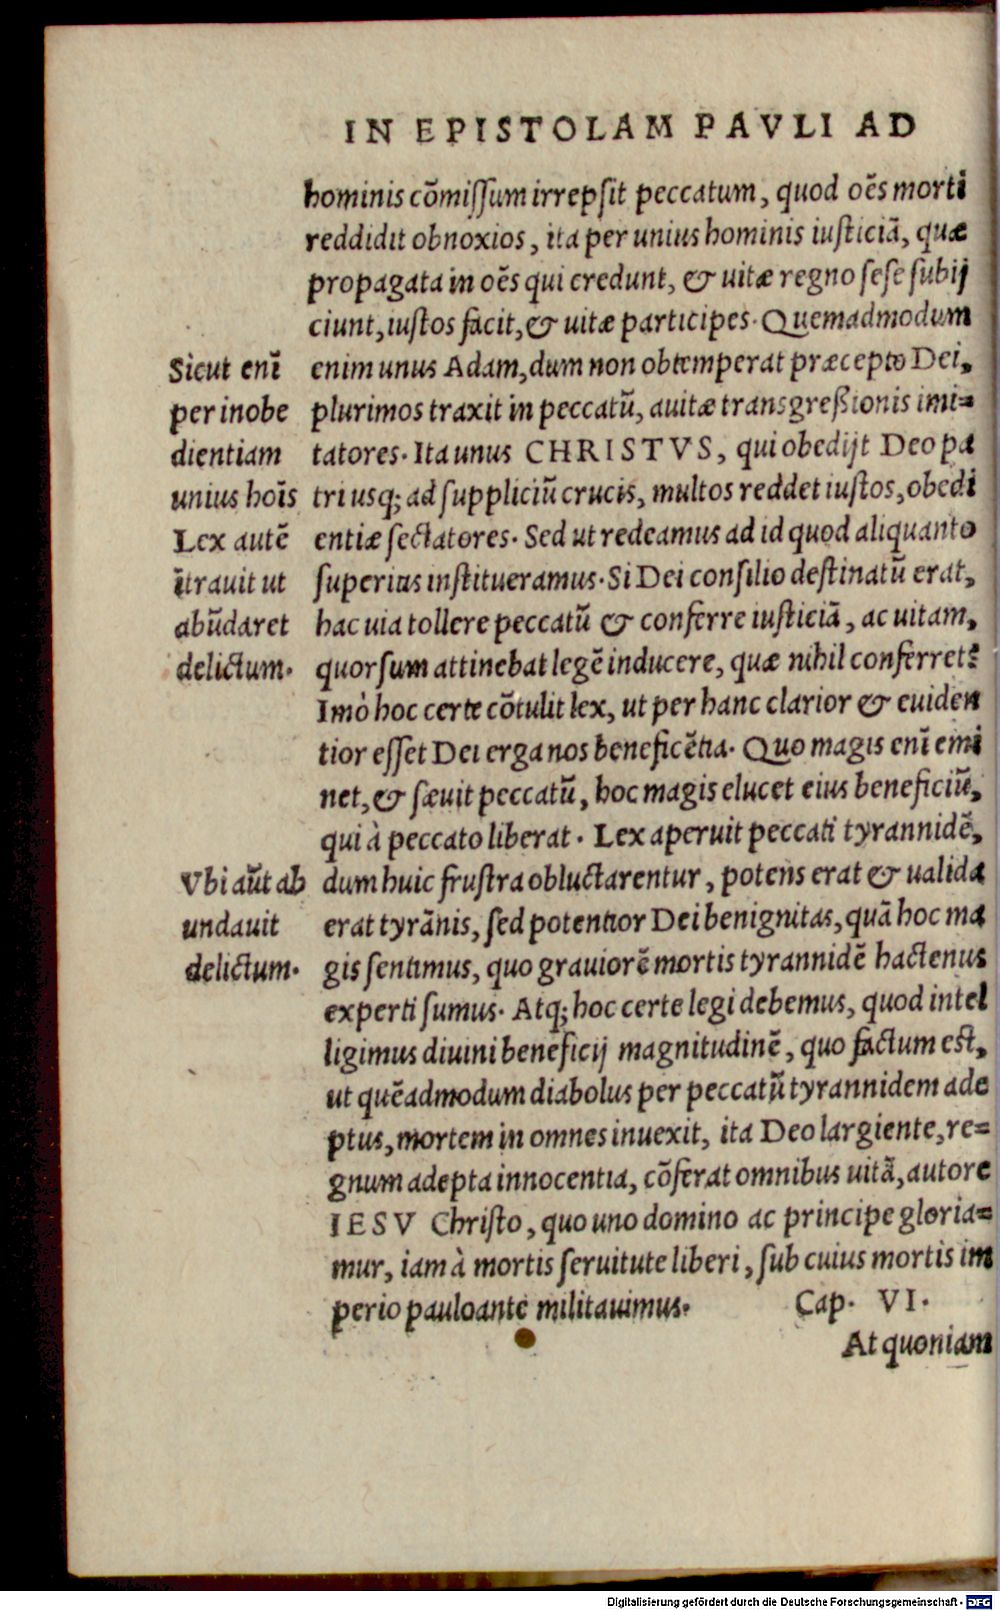 IN EPISTOLAM PAVLI AD
hominis cõmissum irrepsit peccatum, quod oẽs morti
reddidit obnoxios, ita per unius hominis iusticiã, quæ
propagata in oẽs qui credunt, & uitæ regno sese subij
ciunt, iustos facit, & uitæ participes. Quemadmodum
enim unus Adam, dum non obtemperat præcepto Dei,
plurimos traxit in peccatũ, auitæ transgreßionis imi=
tatores. Ita unus CHRISTVS, qui obedijt Deo pa
tri usq; ad suppliciũ crucis, multos reddet iustos, obedi
entiæ sectatores. Sed ut redeamus ad id quod aliquanto
superius institueramus. Si Dei consilio destinatũ erat,
hac uia tollere peccatũ & conferre iusticiã, ac uitam,
quorsum attinebat legẽ inducere, quæ nihil conferret?
Imò hoc certe cõtulit lex, ut per hanc clarior & euiden
tior esset Dei erga nos beneficẽtia. Quo magis enĩ emi
net, & sæuit peccatũ, hoc magis elucet eius beneficiũ,
qui à peccato liberat. Lex aperuit peccati tyrannidẽ,
dum huic frustra obluctarentur, potens erat & ualida
erat tyrãnis, sed potentior Dei benignitas, quã hoc ma
gis sentimus, quo grauiorẽ mortis tyrannidẽ hactenus
experti sumus. Atq; hoc certe legi debemus, quod intel
ligimus diuini beneficij magnitudinẽ, quo factum est,
ut quẽadmodum diabolus per peccatũ tyrannidem ade
ptus, mortem in omnes inuexit, ita Deo largiente, re=
gnum adepta innocentia, cõferat omnibus uitã, autore
IESV Christo, quo uno domino ac principe gloria=
mur, iam à mortis seruitute liberi, sub cuius mortis im
perio pauloante militauimus. Cap. VI.
At quoniam
Sicut enĩ
per inobe
dientiam
unius hoĩs
Lex autẽ
ĩtrauit ut
abũdaret
delictum.
Vbi aũt ab
undauit
delictum.
Digitalisierung gefördert durch die Deutsche Forschungsgemeinschaft - DFG